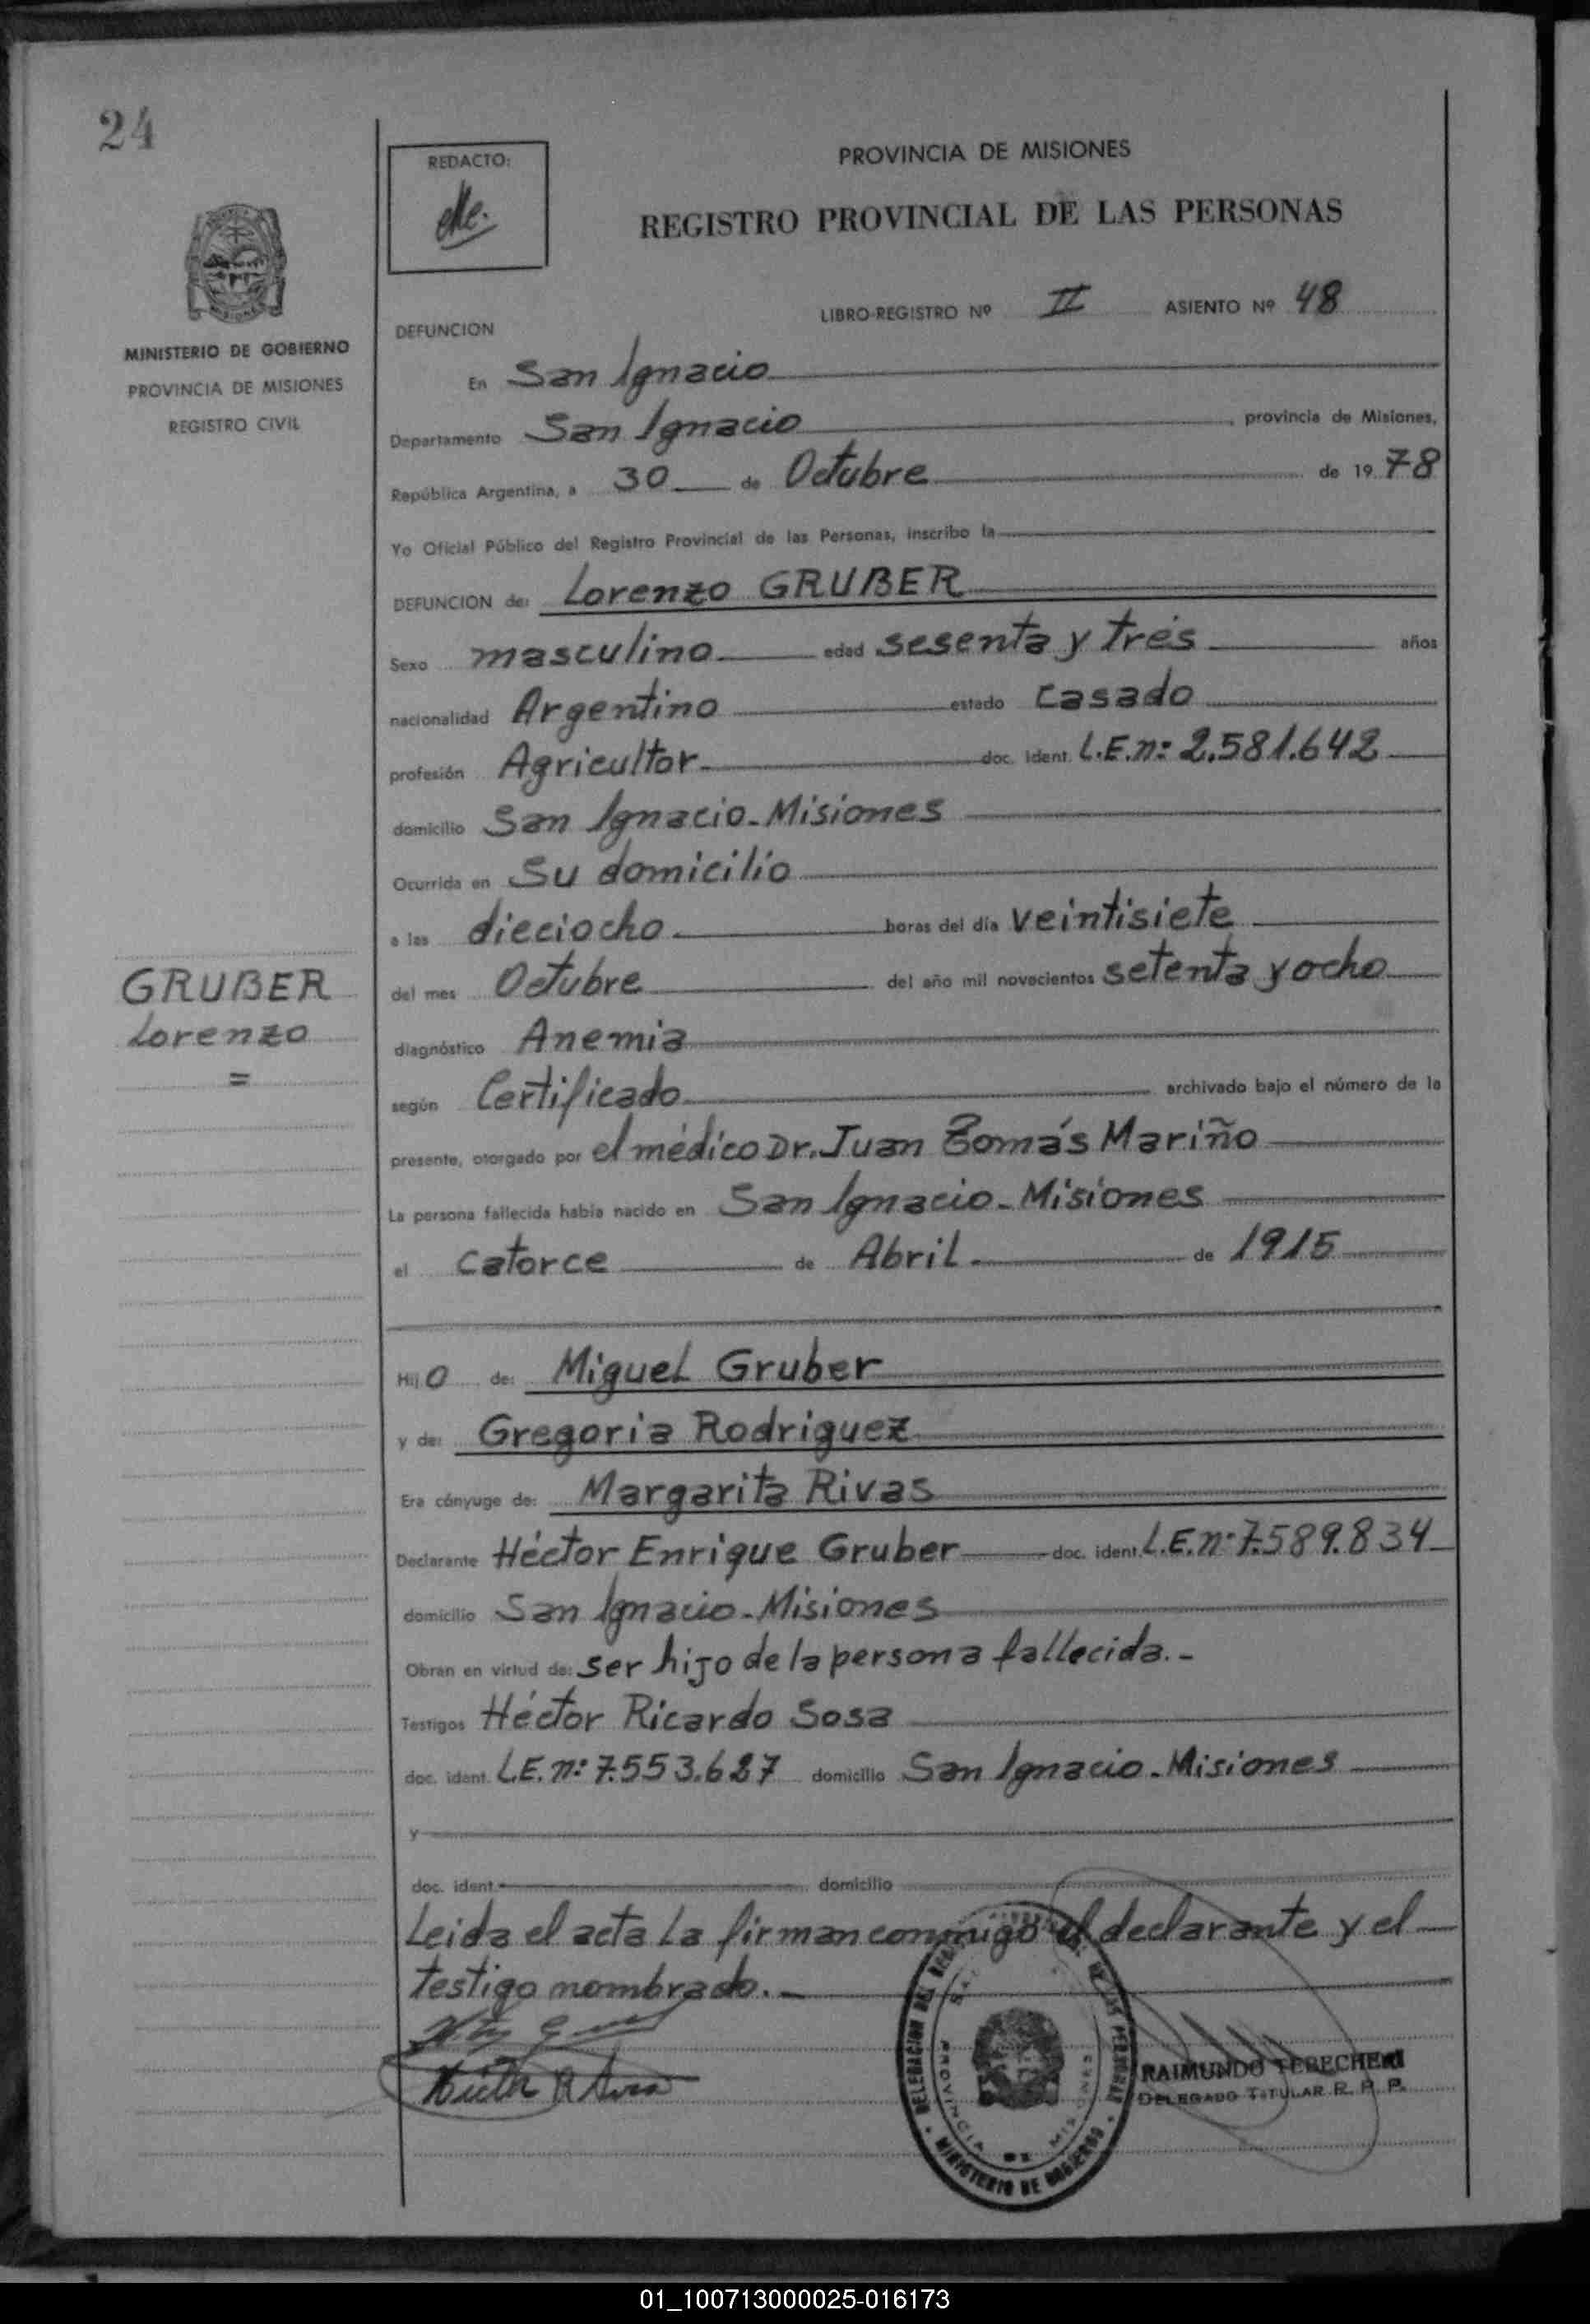 24
REDACTO:
PROVINCIA DE MISIONES
REGISTRO PROVINCIAL DE LAS PERSONAS
LIBRO-REGISTRO Nº II ASIENTO Nº 48
MINISTERIO DE GOBIERNO
PROVINCIA DE MISIONES
REGISTRO CIVIL
DEFUNCION
En San Ignacio
Departamento San Ignacio, provincia de Misiones,
República Argentina, a 30 de Octubre de 1978
Yo Oficial Público del Registro Provincial de las Personas, inscribo la
DEFUNCION de: Lorenzo GRUBER
Sexo masculino edad sesenta y trés años
nacionalidad Argentino estado casado
profesión Agricultor doc. ident. L.E.n: 2.581.642
domicilio San Ignacio-Misiones
Ocurrida en Su domicilio
a las dieciocho horas del día veintisiete
GRUBER
Lorenzo
=
del mes Octubre del año mil novecientos setenta y ocho
diagnóstico Anemia
según Certificado archivado bajo el número de la
presente, otorgado por el médico Dr. Juan Tomás Mariño
La persona fallecida había nacido en San Ignacio-Misiones
el catorce de Abril de 1915
Hijo de: Miguel Gruber
y de: Gregoria Rodriguez
Era cónyuge de: Margarita Rivas
Declarante Héctor Enrique Gruber doc. ident. L.E.n: 7.589.834
domicilio San Ignacio-Misiones
Obran en virtud de: ser hijo de la persona fallecida.-
Testigos Héctor Ricardo Sosa
doc. ident. L.E.n: 7.553.687 domicilio San Ignacio-Misiones
y
doc. ident. domicilio
Leida el acta La firman conmigo el declarante y el
testigo nombrado.-
DELEGACION DEL DE LAS PERSONAS
PROVINCIA DE MISIONES
MINISTERIO DE GOBIERNO
RAIMUNDO
DELEGADO TITULAR R. P. P.
01_100713000025-016173